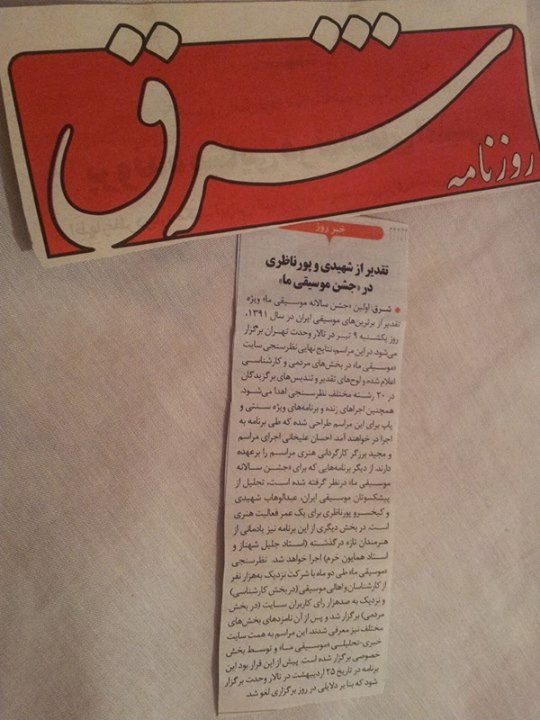 روزنامه
شرق
خبر روز
تقدیر از شهیدی و پورناظری
در «جشن موسیقی ما»
شرق: اولین «جشن سالانه موسیقی ما» ویژه
تقدیر از برترین‌های موسیقی ایران در سال ۱۳۹۱،
روز یکشنبه ۹ تیر در تالار وحدت تهران برگزار
می‌شود. در این مراسم، نتایج نهایی نظرسنجی سایت
«موسیقی ما» در بخش‌های مردمی و کارشناسی
اعلام شده و لوح‌های تقدیر و تندیس‌های برگزیدگان
در ۲۰ رشته مختلف نظرسنجی اهدا می‌شود.
همچنین اجراهای زنده و برنامه‌های ویژه سنتی و
پاپ برای این مراسم طراحی شده که طی برنامه به
اجرا در خواهند آمد. احسان علیخانی اجرای مراسم
و مجید برزگر کارگردانی هنری مراسم را برعهده
دارند. از دیگر برنامه‌هایی که برای «جشن سالانه
موسیقی ما» درنظر گرفته شده است، تجلیل از
پیشکسوتان موسیقی ایران، عبدالوهاب شهیدی
و کیخسرو پورناظری برای یک عمر فعالیت هنری
است. در بخش دیگری از این برنامه نیز یادمانی از
هنرمندان تازه درگذشته (استاد جلیل شهناز و
استاد همایون خرم) اجرا خواهد شد. نظرسنجی
«موسیقی ما» طی دو ماه با شرکت نزدیک به‌هزار نفر
از کارشناسان و اهالی موسیقی (در بخش کارشناسی)
و نزدیک به صدهزار رای کاربران سایت (در بخش
مردمی) برگزار شد و پس از آن نامزدهای بخش‌های
مختلف نیز معرفی شدند. این مراسم به همت سایت
خبری-تحلیلی «موسیقی ما» و توسط بخش
خصوصی برگزار شده است. پیش از این قرار بود این
برنامه در تاریخ ۲۵ اردیبهشت در تالار وحدت برگزار
شود که بنا بر دلایلی در روز برگزاری لغو شد.